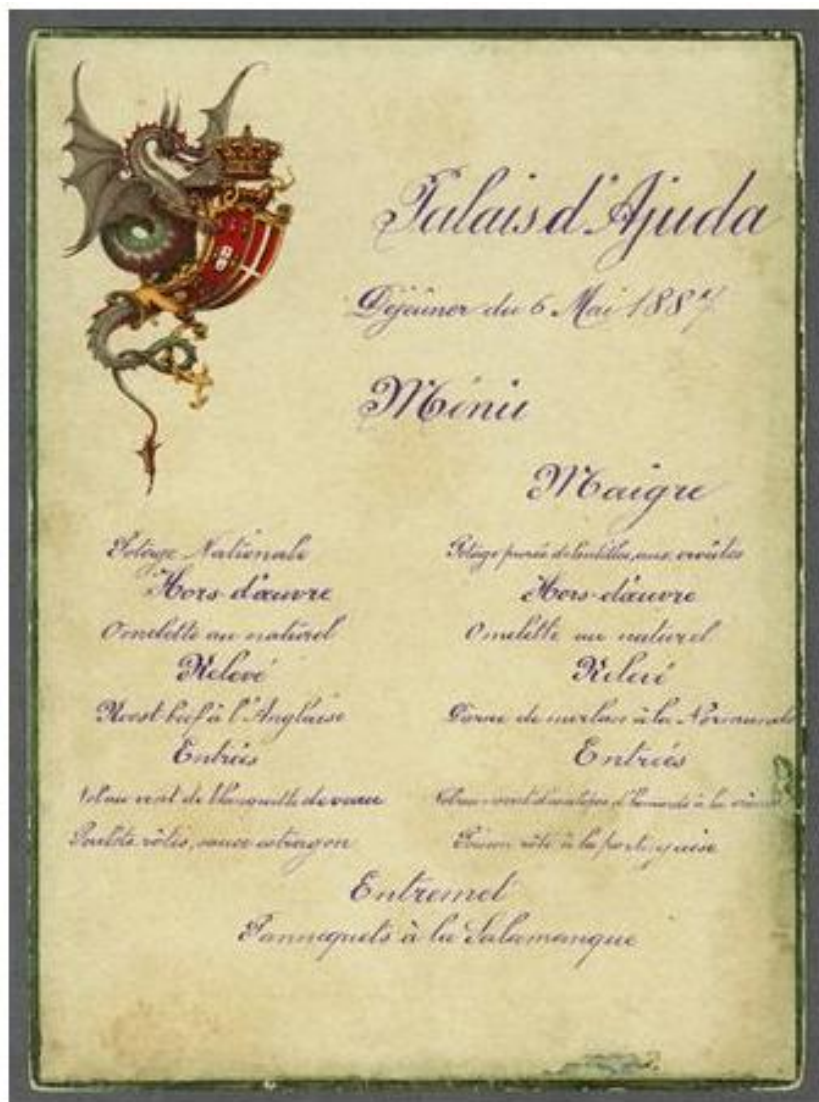 Palais d'Ajuda
Déjeuner du 6 Mai 1887
Ménu
Maigre
Potage Nationale
Hors-d'œuvre
Omelette au naturel
Relevé
Roost-beef à l'Anglaise
Entrées
Vol au vent de blanquette de veau
Poulets rôtis, sauce estragon
Potage purée de lentilles, aux croûtes
Hors-d'œuvre
Omelette au naturel
Relevé
Darne de merlan à la Normande
Entrées
Vol au vent d'escalopes d'homards à la
Poisson rôti à la portugaise
Entremet
Pannequets à la Salamanque